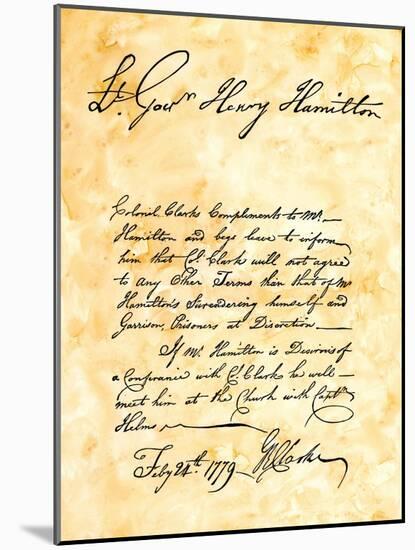 Lt. Govrn Henry Hamilton
Colonel Clarks Compliments to Mr.
Hamilton and begs leave to inform
him that Col. Clark will not agree
to any Other Terms than that of Mr
Hamilton's Surendering himself and
Garrison, Prisoners at Discretion.
If Mr. Hamilton is Desirous of
a Conferance with Col. Clark he will
meet him at the Church with Captn
Helms
Feby 24th. 1779 GRClark